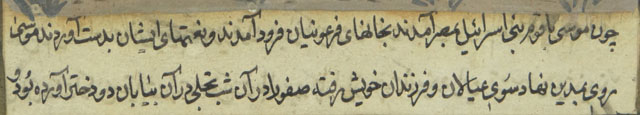 چون موسی با قوم بنی اسرائیل بمصر آمدند بخانهای فرعونیان فرود آمدند و نعمتهای ایشان بدست آوردند موسی
روی بمدین نهاد سوی عیالان و فرزندان خویش رفته صفورا در آن شب تجلی در آن بیابان دو دختر آورده بود و